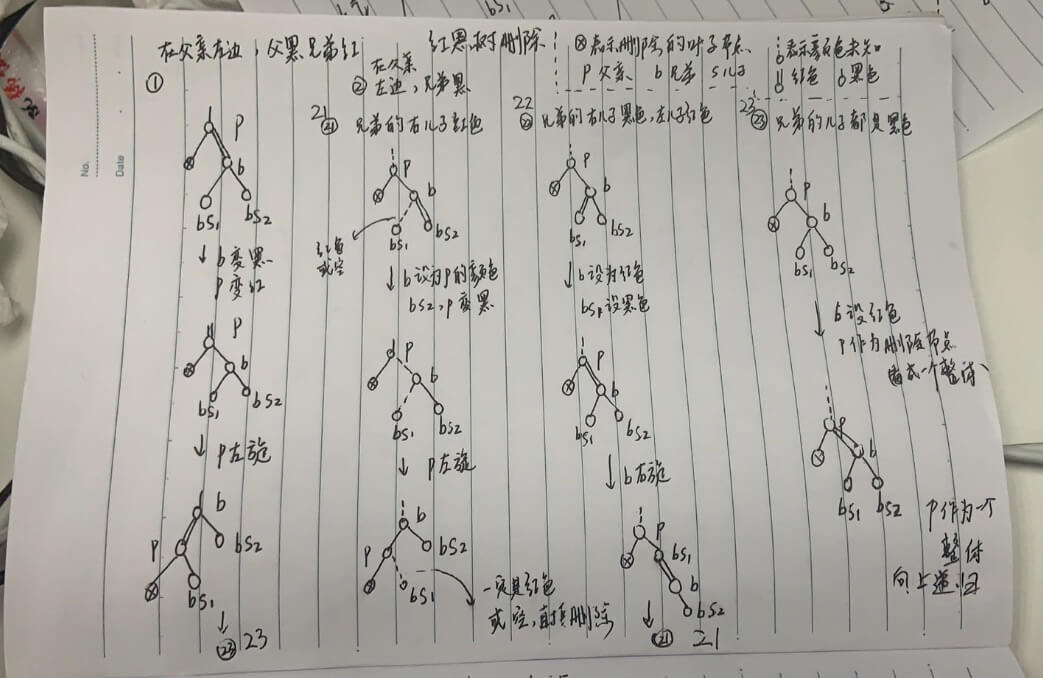 bs1
No.
Date
在父亲左边，父黑兄弟红
红黑树删除
⊗表示删除的叶子节点
P 父亲 b 兄弟 s儿子
表示颜色未知
红色 黑色
①
② 在父亲
左边，兄弟黑
21 ㉑ 兄弟的右儿子红色
22 ㉒ 兄弟的右儿子黑色，左儿子红色
23 ㉓ 兄弟的儿子都是黑色
P
b
bs1
bs2
↓ b变黑
P变红
P
b
bs1
bs2
↓ P左旋
b
P
bs2
bs1
↓
㉓ 23
P
b
bs1
bs2
红色
或空
↓ b设为P的颜色
bs2，P变黑
P
b
bs1
bs2
↓ P左旋
b
P
bs2
bs1
一定是红色
或空，直接删除
P
b
bs1
bs2
↓ b设为红色
设黑色
P
b
bs1
bs2
↓ b右旋
P
bs1
b
bs2
↓
㉑ 21
P
b
bs1
bs2
↓ b设红色
P作为删除节点
看成一个整体
P
b
bs1
bs2
P作为一个
整体
向上递归